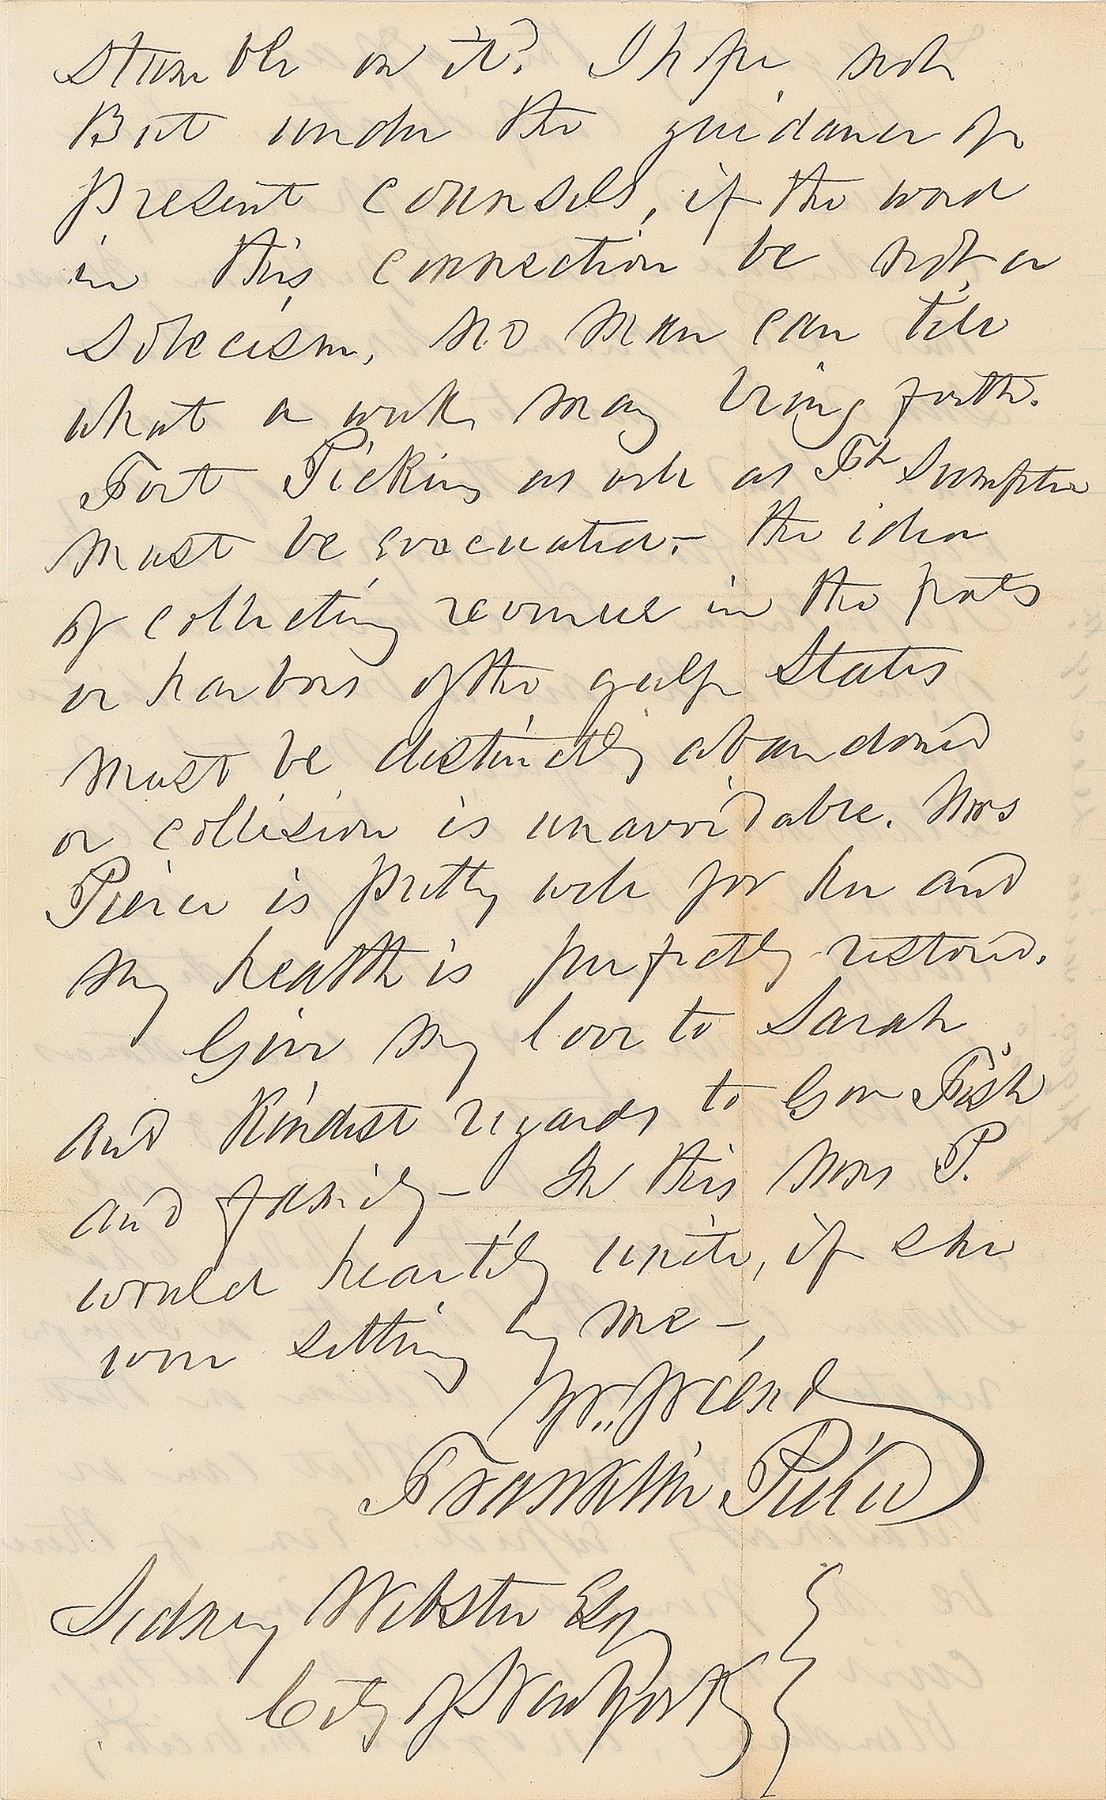 stumble on it? I hope not
But under the guidance of
present counsels, if the word
in this connection be not a
solecism, no man can tell
what a week may bring forth.
Fort Pickins as well as Ft Sumpter
must be evacuated – the idea
of collecting revenue in the ports
or harbors of the gulf States
must be distinctly abandoned
or collision is unavoidable. Mrs
Pierce is pretty well for her and
my health is perfectly restored.
Give my love to Sarah
and Kindest regards to Gov Fish
and family – In this Mrs P.
would heartily unite, if she
were setting by me –,
Yr. friend
Franklin Pierce
Sidney Webster Esq
City of New York